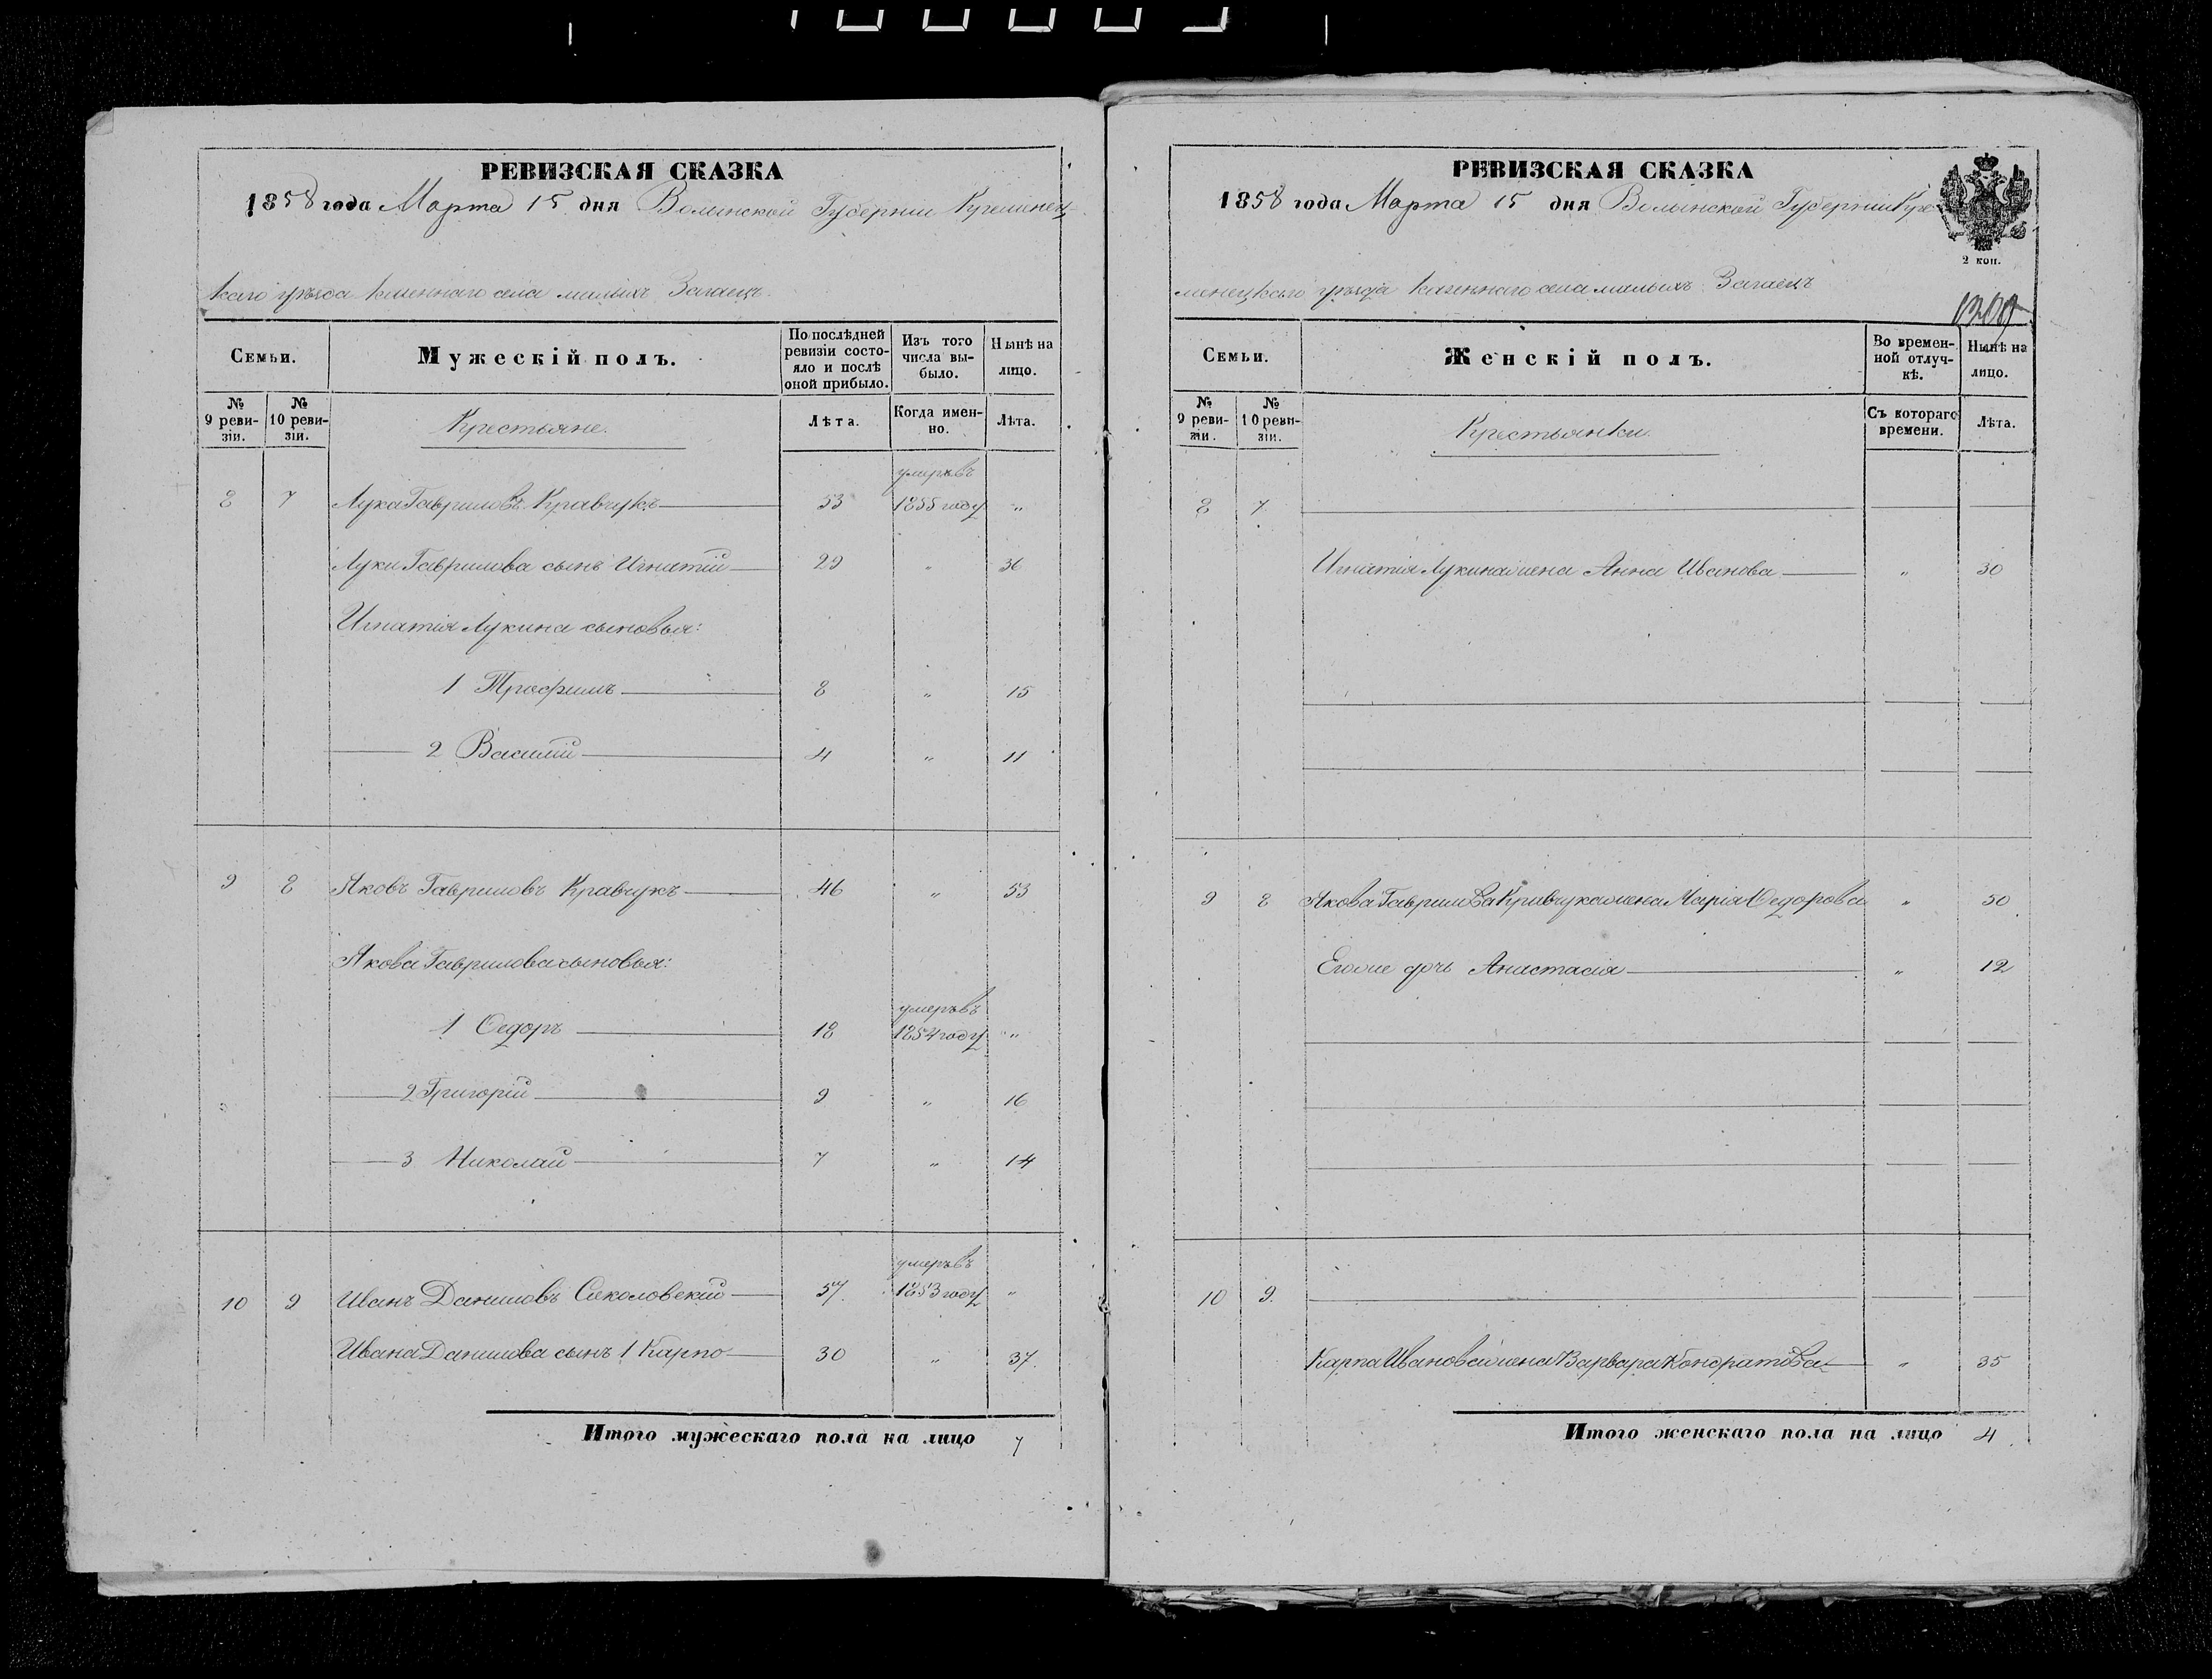 РЕВИЗСКАЯ СКАЗКА
1858 года Марта 15 дня Волынской Губернии Кременец
каго уѣзда казеннаго села малыхъ Загаецъ
Семьи.
Мужескій полъ.
По послѣдней ревизіи состояло и послѣ оной прибыло.
Изъ того числа выбыло.
Нынѣ на лицо.
№ 9 ревизіи.
№ 10 ревизіи.
Крестьяне.
Лѣта.
Когда именно.
Лѣта.
умеръ въ
8 7 Лука Гавриловъ Кравчукъ 53 1855 году „
Луки Гаврилова сынъ Игнатій 29 „ 36
Игнатія Лукина сыновья:
1 Трофимъ 8 „ 15
2 Василій 4 „ 11
9 8 Яковъ Гавриловъ Кравчукъ 46 „ 53
Якова Гаврилова сыновья:
умеръ въ
1 Ѳедоръ 18 1854 году „
2 Григорій 9 „ 16
3 Николай 7 „ 14
умеръ въ
10 9 Иванъ Даниловъ Соколовскій 57 1853 году „
Ивана Данилова сынъ 1 Карпо 30 „ 37
Итого мужескаго пола на лицо 7
РЕВИЗСКАЯ СКАЗКА
1858 года Марта 15 дня Волынской Губерніи Кре
2 коп.
менецкаго уѣзда казеннаго села малыхъ Загаецъ
Семьи.
Женскій полъ.
Во временной отлучкѣ.
Нынѣ на лицо.
№ 9 ревизіи.
№ 10 ревизіи.
Крестьянки.
Съ котораго времени.
Лѣта.
8 7
Игнатія Лукина жена Анна Иванова „ 30
9 8 Якова Гаврилова Кравчука жена Марія Ѳедорова „ 50
Егоже дочь Анастасія „ 12
10 9
Карпа Иванова жена Варвара Кондратова „ 35
Итого женскаго пола на лицо 4